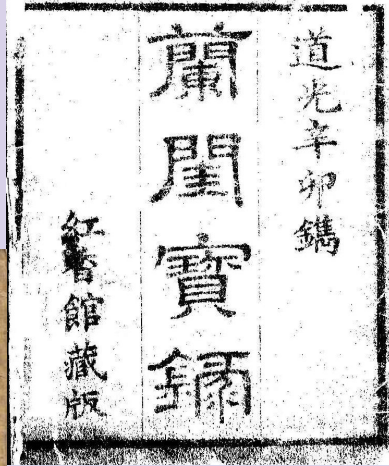 道光辛卯鐫
蘭閨寶錄
紅香館藏版